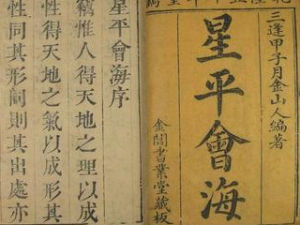 三逢甲子月金山人編著
星平會海
金閶書業堂藏板
星平會海序
竊惟人得天地之理以成
性得天地之氣以成形其
性同其形同則其出處亦